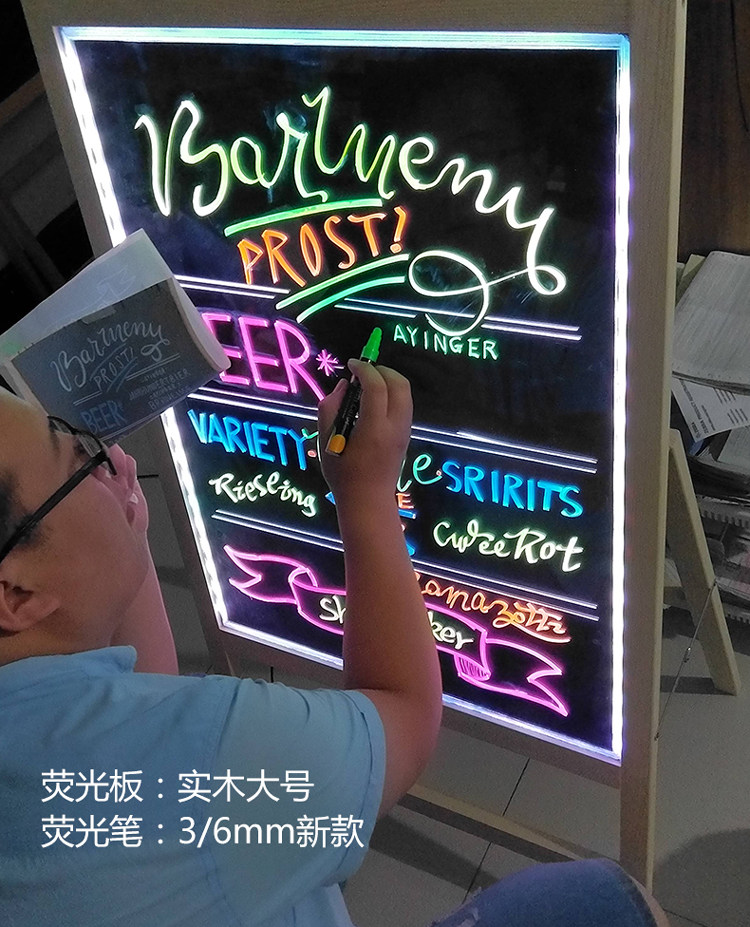 Barmeny
PROST!
AYINGER
EER*
VARIETY
SRIRITS
Riesling
CwéeRot
Ramazotti
Sh ker
Barmeny
PROST!
BEER
荧光板：实木大号
荧光笔：3/6mm新款